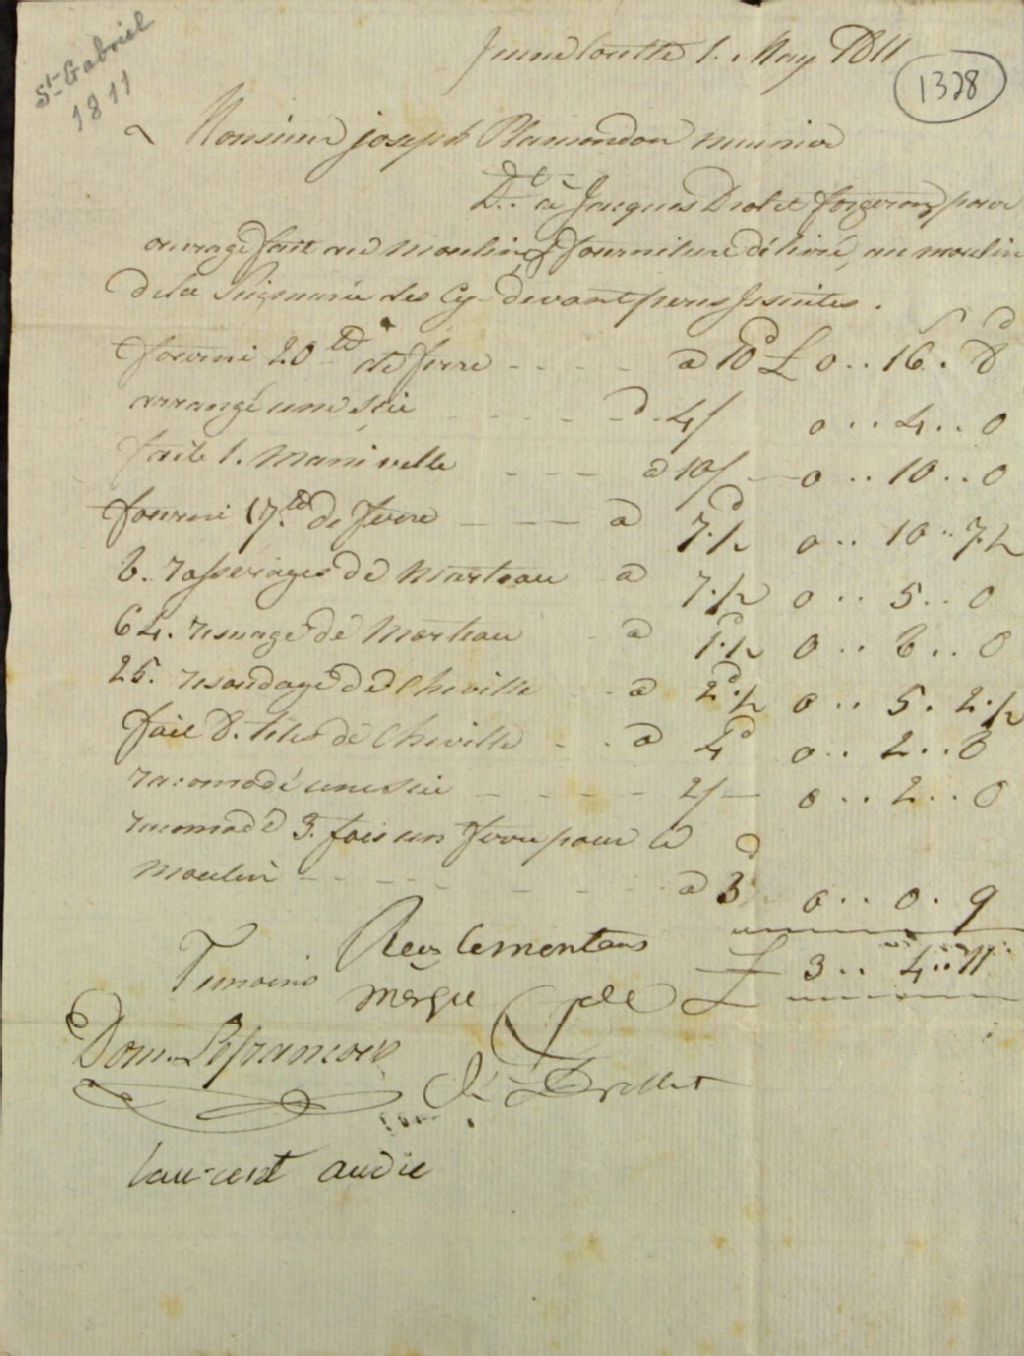 St Gabriel
1811
1328
Jeune Lorette 1. May 1811
Monsieur joseph Plamondon meunier
Dt. à Jacques Drolet forgeron pour
ouvrage fait au moulin & fourniture délivré, au moulin
de la Seigneurie des Cy-devant peres Jesuites.
fourni 20 lb de ferre - - - - a 10d £ 0 .. 16 . 8
arrangé une scie - - - - a 4/ 0 .. 4 .. 0
faite 1. Manivelle - - - a 10/ 0 .. 10 .. 0
fourni 17. lb de ferre - - - a 7d.½ 0 .. 10 .. 7.½
8. rasserages de marteau a 7.½ 0 .. 5 .. 0
64. de marteau - a 1d.½ 0 .. 8 .. 0
25. resoudage de Cheville - - a 2d.½ 0 .. 5 . 2.½
fait 8. têtes de Cheville - - a 4d 0 .. 2 .. 8
racomodé une scie - - - - 2/ 0 .. 2 .. 0
racomodé 3. fois un ferre pour le
moulin - - - - - - a 3d 0 .. 0 . 9
£ 3 .. 4 .. 11
Temoins
Reçu le montans
Dom. Lefrancois
Drollet
laurent audie